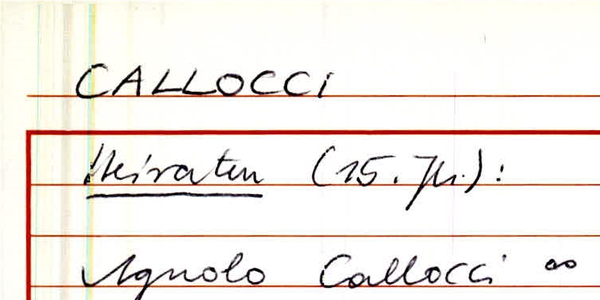 CALLOCCI
Heiraten (15. Jh.):
Agnolo Callocci ∞